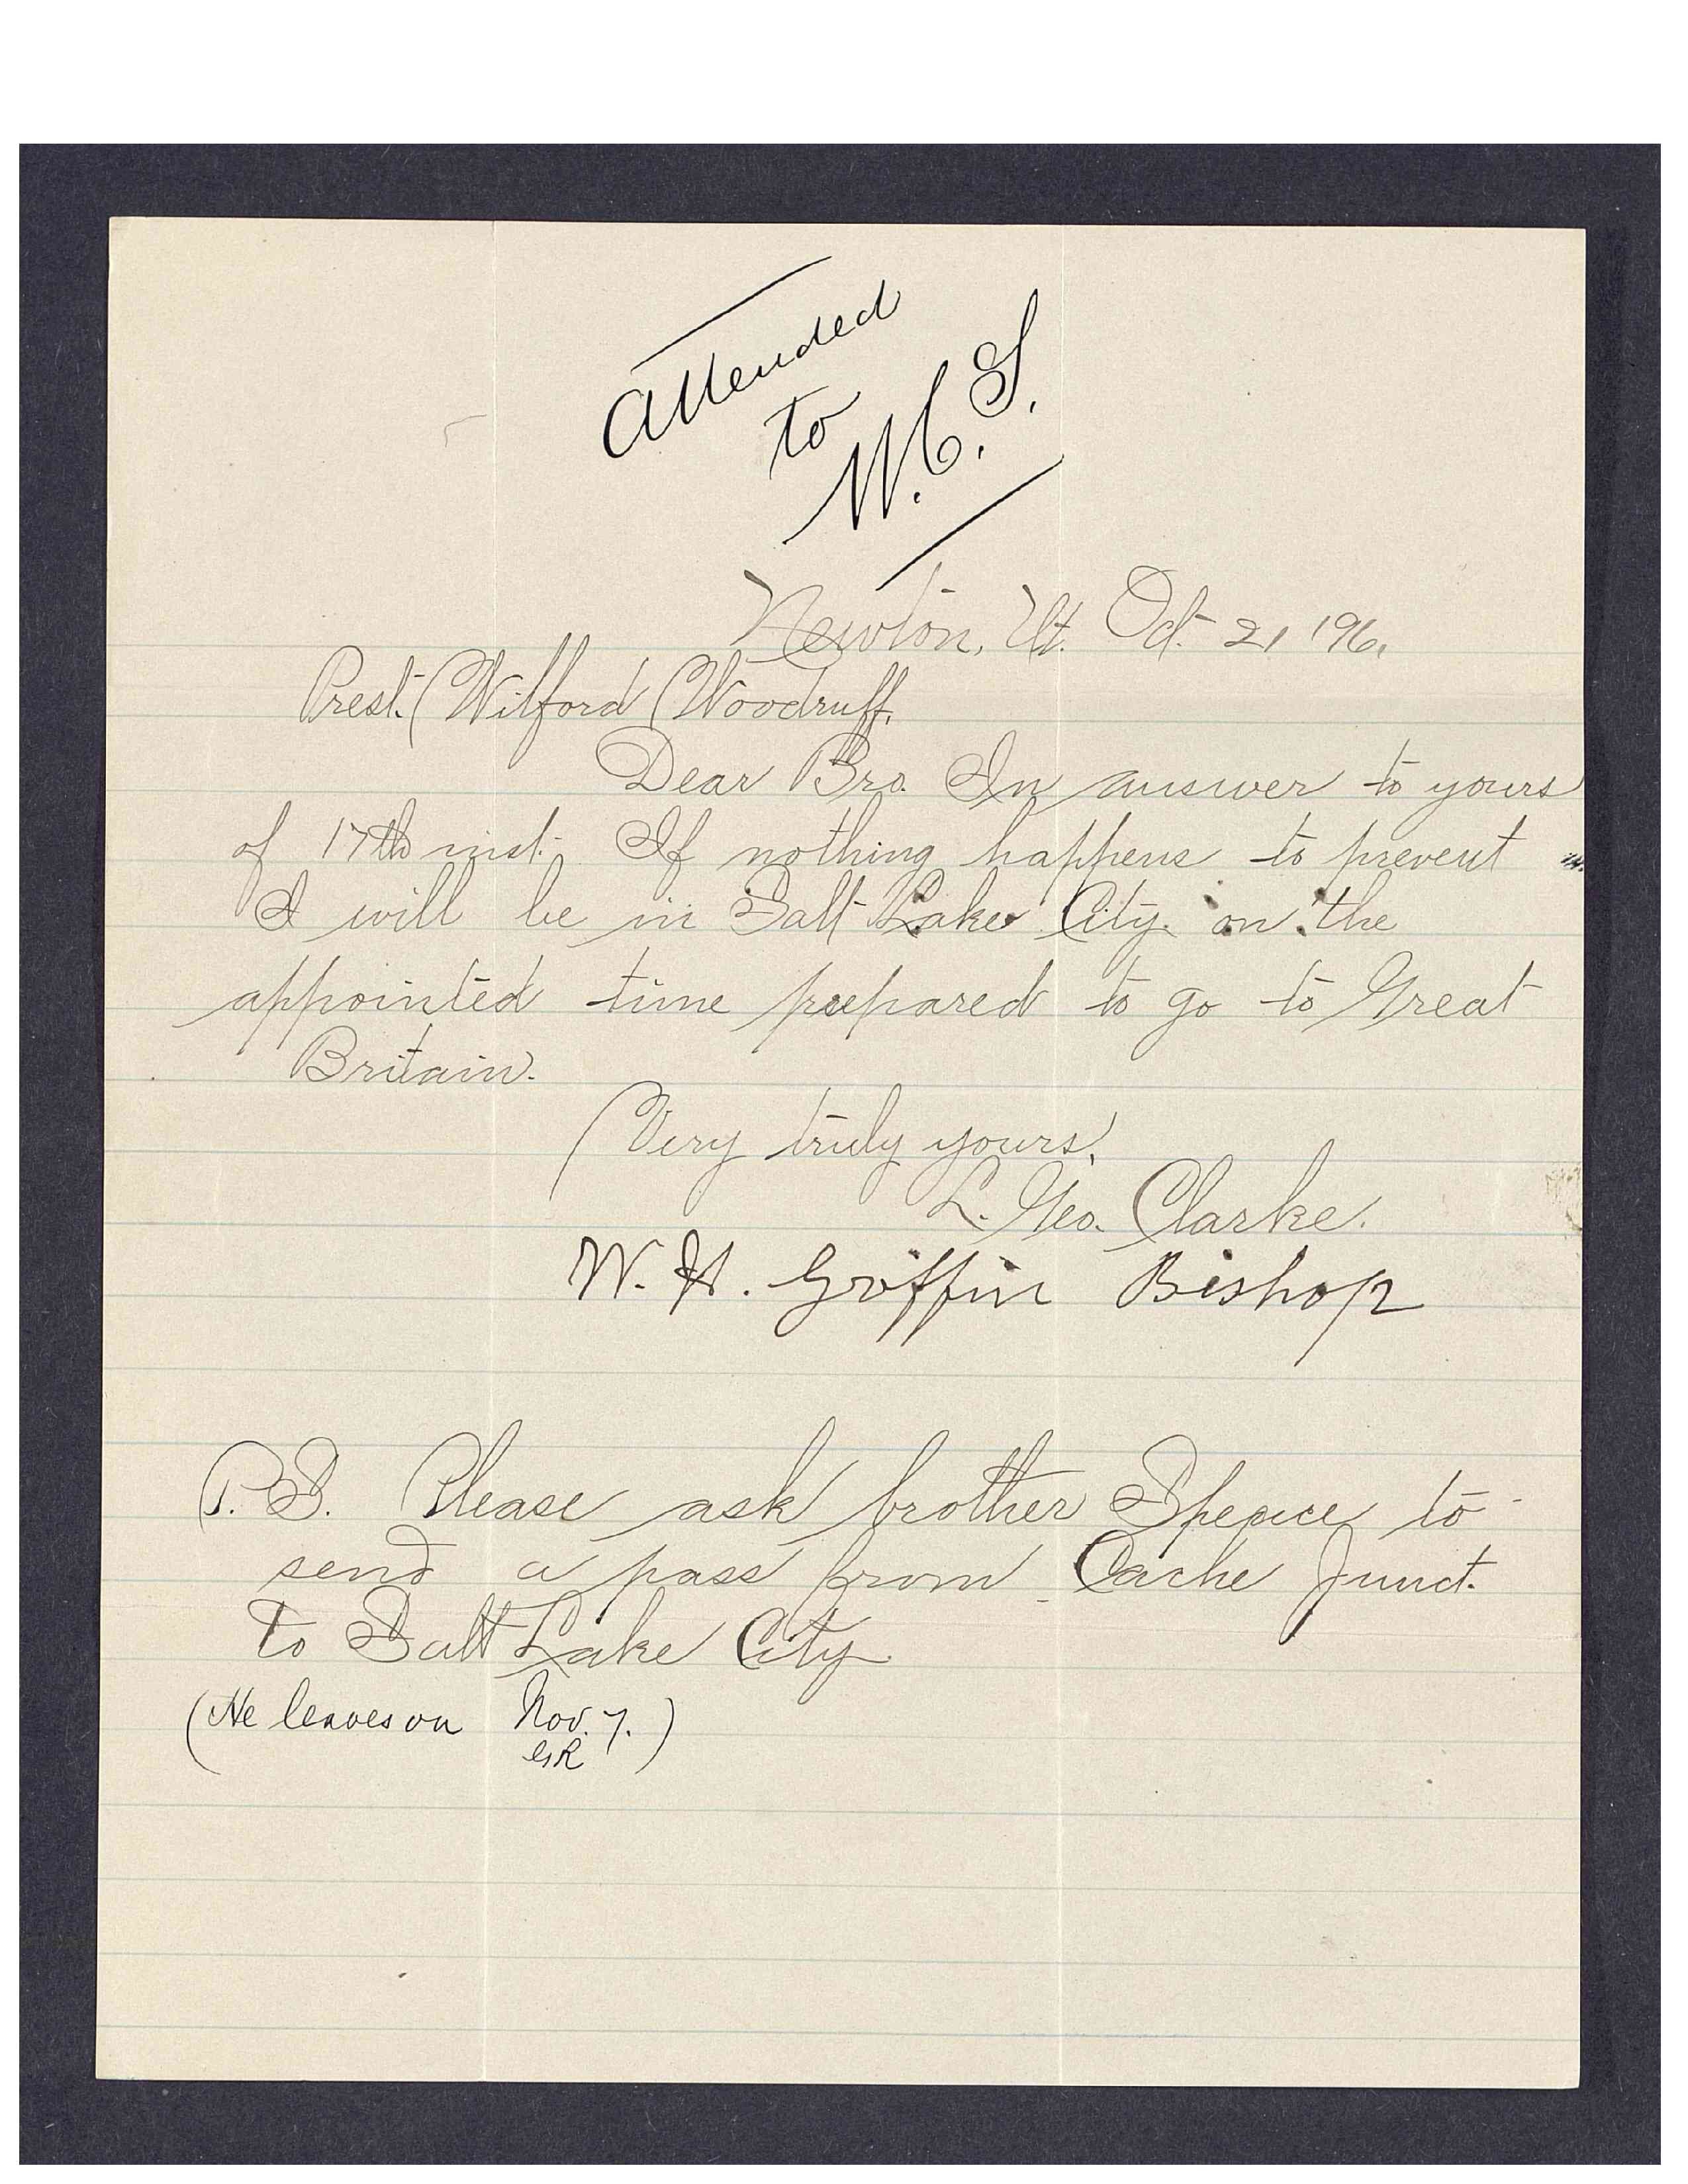 Attended
to
W.C.S.
Newton, Ut. Oct. 21 '96.
Prest. Wilford Woodruff.
Dear Bro. In answer to yours
of 17th inst. If nothing happens to prevent
I will be in Salt Lake City on the
appointed time prepared to go to Great
Britain.
Very truly yours,
L. Geo. Clarke.
W. H. Griffin Bishop
P.S. Please ask brother Spence to
send a pass from Cache Junct.
to Salt Lake City.
(He leaves on Nov. 7.)
GR